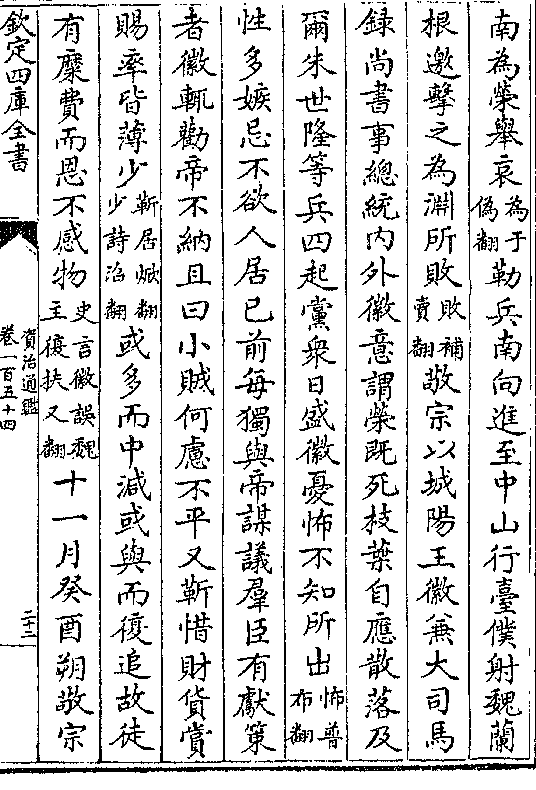 南為榮舉哀為于偽翻勒兵南向進至中山行臺僕射魏蘭
根邀擊之為淵所敗敗補賣翻敬宗以城陽王徽兼大司馬
録尚書事總統内外徽意謂榮既死枝葉自應散落及
爾朱世隆等兵四起黨衆日盛徽憂怖不知所出怖普布翻
性多嫉忌不欲人居已前每獨與帝謀議羣臣有獻策
者徽輒勸帝不納且曰小賊何慮不平又靳惜財貨賞
賜率皆薄少靳居焮翻少詩沼翻或多而中減或與而復追故徒
有糜費而恩不感物史言徽誤魏主復扶又翻十一月癸酉朔敬宗
欽定四庫全書
資治通鑑
卷一百五十四
二十二